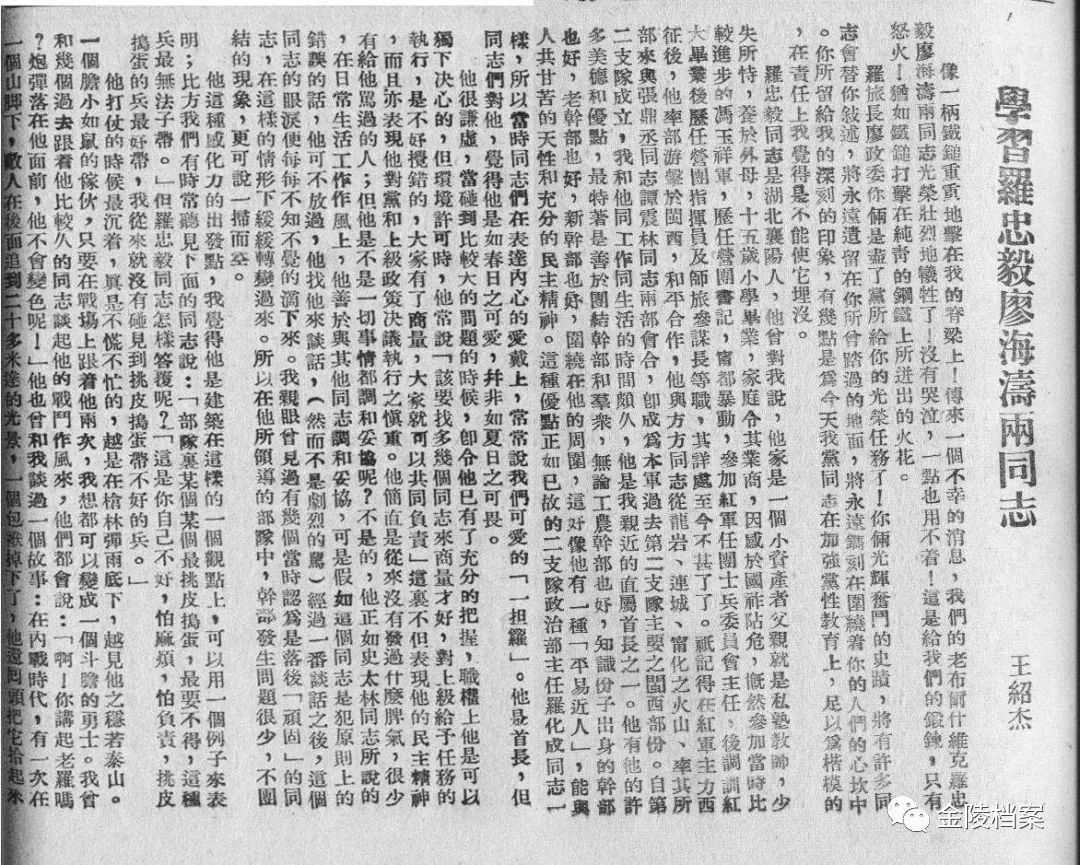 學習羅忠毅廖海濤兩同志
王紹杰
像一柄鐵鎚重重地擊在我的脊梁上！傳來一個不幸的消息，我們的老布爾什維克羅忠
毅廖海濤兩同志光榮壯烈地犧牲了！沒有哭泣，一點也用不着！這是給我們的鍛鍊，只有
怒火！猶如鐵鎚打擊在純青的鋼鐵上所迸出的火花。
羅旅長廖政委你倆是盡了黨所給你的光榮任務了！你倆光輝奮鬥的史蹟，將有許多同
志會替你敍述，將永遠遺留在你所曾踏過的地面，將永遠鐫刻在圍繞着你的人們的心坎中
。你所留給我的深刻的印象，有幾點是爲今天我黨同志在加強黨性教育上，足以爲楷模的
，在責任上我覺得是不能使它埋沒。
羅忠毅同志是湖北襄陽人，他曾對我說，他家是一個小資產者父親就是私塾教師，少
失所恃，養於舅母，十五歲小學畢業，家庭令其業商，因感於國祚阽危，慨然參加當時比
較進步的馮玉祥軍，歷任營團書記，甯都暴動，參加紅軍任團士兵委員會主任，後調訓紅
大畢業後歷任營團指揮員及師旅參謀長等職，其詳處至今不甚了了。祇記得在紅軍主力西
征後，他率部游擊於閩西，和平合作，他與方方同志從龍岩、連城、甯化之火山、率其所
部來與張鼎丞同志譚震林同志兩部會合，卽成爲本軍過去第二支隊主要之閩西部份。自第
二支隊成立，我和他同工作同生活的時間頗久，他是我親近的直屬首長之一。他有他的許
多美德和優點，最特著是善於團結幹部和羣衆，無論工農幹部也好，知識份子出身的幹部
也好，老幹部也好，新幹部也好，圍繞在他的周圍，這好像他有一種「平易近人」，能與
人共甘苦的天性和充分的民主精神。這種優點正如已故的二支隊政治部主任羅化成同志一
樣，所以當時同志們在表達內心的愛戴上，常常說我們可愛的「一担羅」。他是首長，但
同志們對他，覺得他是如春日之可愛，幷非如夏日之可畏。
他很謙虛，當碰到比較大的問題的時候，卽令他已有了充分的把握，職權上他是可以
獨下決心的，但環境許可時，他常說「該要找多幾個同志來商量才好，對上級給予任務的
執行，是不好攪錯的，大家有了商量，大家就可以共同負責」這裏不但表現他的民主精神
，而且亦表現他對黨和上級政策決議執行之愼重。他簡直是從來沒有發過什麼脾氣，很少
有給他罵過的人；但他是不是一切事情都調和妥協呢？不是的，他正如史太林同志所說的
，在日常生活工作作風上，他善於與其他同志調和妥協，可是假如這個同志是犯原則上的
錯誤的話，他可不放過，他找他來談話，（然而不是劇烈的罵）經過一番談話之後，這個
同志的眼淚便每每不知不覺的滴下來。我親眼曾見過有幾個當時認爲是落後「頑固」的同
志，在這樣的情形下緩緩轉變過來。所以在他所領導的部隊中，幹部發生問題很少，不團
結的現象，更可說一掃而空。
他這種感化力的出發點，我覺得他是建築在這樣的一個觀點上，可以用一個例子來表
明；比方我們有時常聽見下面的同志說：「部隊裏某個某個最挑皮搗蛋，最要不得，這種
兵最無法子帶。」但羅忠毅同志怎樣答覆呢？「這是你自己不好，怕麻煩，怕負責，挑皮
搗蛋的兵最好帶，我從來就沒有碰見到挑皮搗蛋帶不好的兵。」
他打仗的時候最沉着，眞是不慌不忙的，越是在槍林彈雨底下，越見他之穩若泰山。
一個膽小如鼠的傢伙，只要在戰場上跟着他兩次，我想都可以變成一個斗膽的勇士。我曾
和幾個過去跟着他比較久的同志談起他的戰鬥作風來，他們都會說：「啊！你講起老羅嗎
？炮彈落在他面前，他不會變色呢！」他也曾和我談過一個故事：在內戰時代，有一次在
一個山脚下，敵人在後面追到二十多米達的光景，一個包袱掉下了，他還回頭把它拾起來
金陵档案